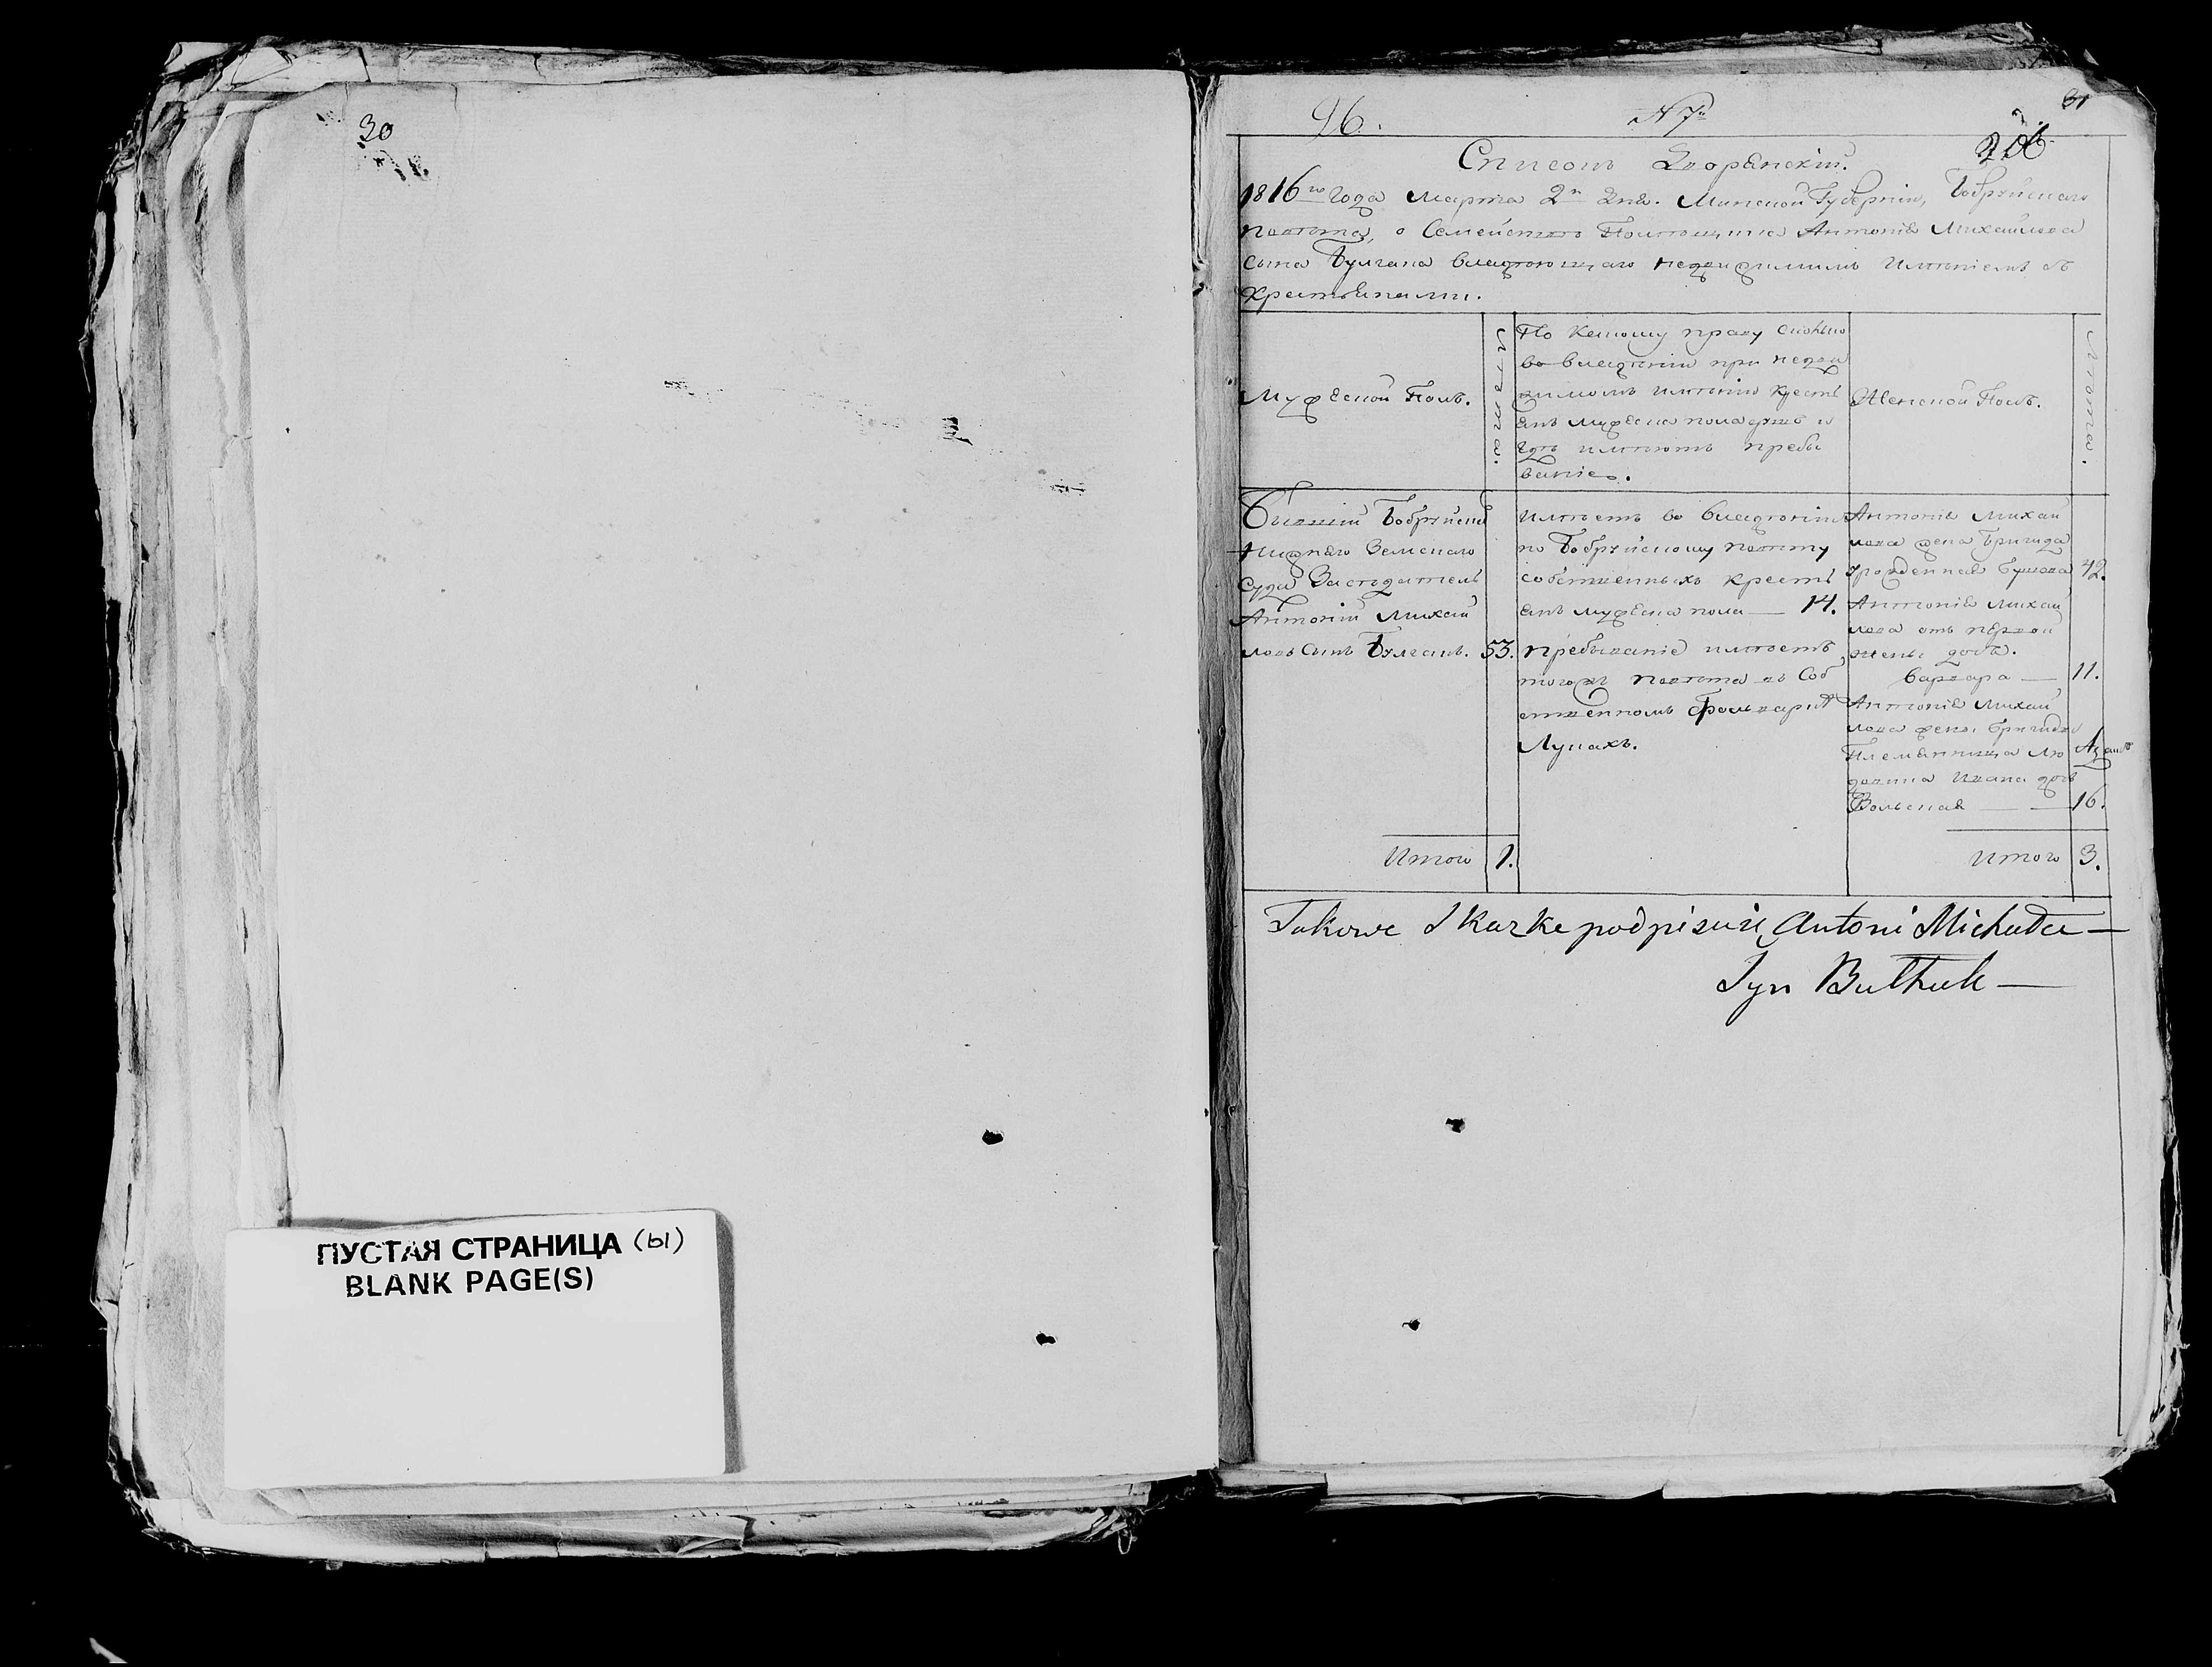 30
ПУСТАЯ СТРАНИЦА (ы)
BLANK PAGE(S)
96.
N 7й
31
Списокъ Дворянскій.
1816го года Марта 2го дня. Минской Губерніи, Бобруйскаго
повѣта, о Семействѣ Помѣщика Антонія Михайлова
сына Булгака владѣющаго недвижимымъ имѣніемъ съ
крестьянами.
Мужеской Полъ.
Лѣта.
По какому праву сколько
во владѣніи при недви
жимомъ имѣніи кресть
янъ мужеска пола душъ и
гдѣ имѣютъ пребы
ваніе.
Женской Полъ.
Лѣта.
Бывшій Бобруйскаго
Нижняго Земскаго
Суда Засѣдатель
Антоній Михай
ловъ Сынъ Булгакъ. 53.
Имѣетъ во владѣніи
по Бобруйскому повѣту
собственныхъ кресть
янъ мужеска пола — 14.
пребываніе имѣетъ
тогожъ повѣта въ Соб
ственномъ Фольварке
Лукахъ.
Антонія Михай
лова жена Бригида
урожденная 42.
Антонія Михай
лова отъ первой
жены дочь.
Варвара — 11.
Антонія Михай
лова жены Бригиды
Племянница Лю
двика Ивана дочь
Вольская — — 16.
Итого 1.
Итого 3.
Takowe Skazke podpisuię Antoni Michała —
Syn Bułhak —